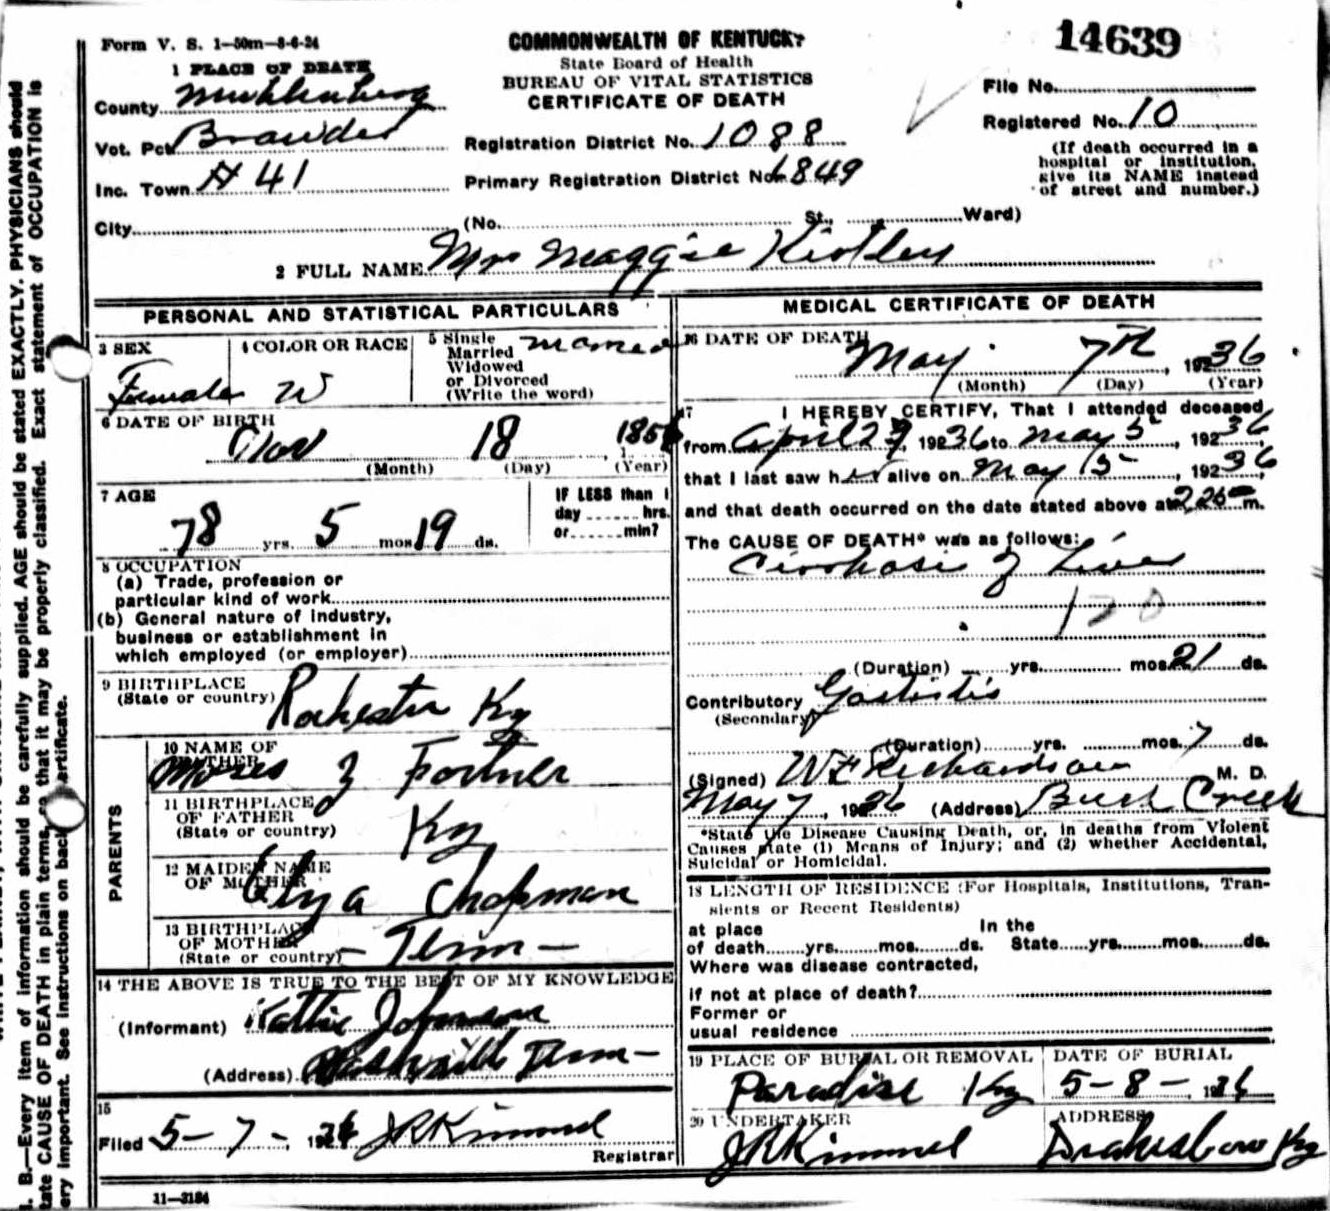 Form V. S. 1-50m-8-6-24
COMMONWEALTH OF KENTUCKY
14639
State Board of Health
BUREAU OF VITAL STATISTICS
CERTIFICATE OF DEATH
1 PLACE OF DEATH
File No.
County Muhlenberg
Registered No. 10
Vot. Pct. Browder
Registration District No. 1088
(If death occurred in a hospital or institution, give its NAME instead of street and number.)
Inc. Town # 41
Primary Registration District No. 6849
City (No. St., Ward)
2 FULL NAME Mrs Maggie
PERSONAL AND STATISTICAL PARTICULARS
3 SEX Female
4 COLOR OR RACE W
5 Single Married Widowed or Divorced (Write the word) married
6 DATE OF BIRTH
Nov 18
(Month) (Day) (Year)
7 AGE
78 yrs. 5 mos 19 ds.
IF LESS than 1
day hrs.
or min?
8 OCCUPATION
(a) Trade, profession or
particular kind of work
(b) General nature of industry,
business or establishment in
which employed (or employer)
9 BIRTHPLACE
(State or country) Rochester Ky
PARENTS
10 NAME OF FATHER Moses Fortner
11 BIRTHPLACE
OF FATHER
(State or country) Ky
12 MAIDEN NAME
OF MOTHER Chapman
13 BIRTHPLACE
OF MOTHER
(State or country) - Tenn -
14 THE ABOVE IS TRUE TO THE BEST OF MY KNOWLEDGE
(Informant) Johnson
(Address) Nashville Tenn -
15
Filed 5-7-, 1936 JR Kimmel
Registrar
11-3184
MEDICAL CERTIFICATE OF DEATH
16 DATE OF DEATH
May 7th, 19236
(Month) (Day) (Year)
17 I HEREBY CERTIFY, That I attended deceased
from April 29, 19236 to May 5, 19236,
that I last saw her alive on May 5, 19236,
and that death occurred on the date stated above at m.
The CAUSE OF DEATH* was as follows:
Cirrhosis of Liver
120
(Duration) yrs. mos. 21 ds.
Contributory Gastritis
(Secondary)
(Duration) yrs. mos. 7 ds.
(Signed) WE Richardson M. D.
May 7, 1936 (Address) Creek
*State the Disease Causing Death, or, in deaths from Violent
Causes state (1) Means of Injury; and (2) whether Accidental,
Suicidal or Homicidal.
18 LENGTH OF RESIDENCE (For Hospitals, Institutions, Tran-
sients or Recent Residents)
at place In the
of death yrs. mos. ds. State yrs. mos. ds.
Where was disease contracted,
if not at place of death?
Former or
usual residence
19 PLACE OF BURIAL OR REMOVAL
Paradise Ky
DATE OF BURIAL
5-8-, 1936
20 UNDERTAKER
JR Kimmel
ADDRESS
Drakesboro Ky
N. B.—Every item of information should be carefully supplied. AGE should be stated EXACTLY. PHYSICIANS should
state CAUSE OF DEATH in plain terms, so that it may be properly classified. Exact statement of OCCUPATION is
very important. See instructions on back certificate.